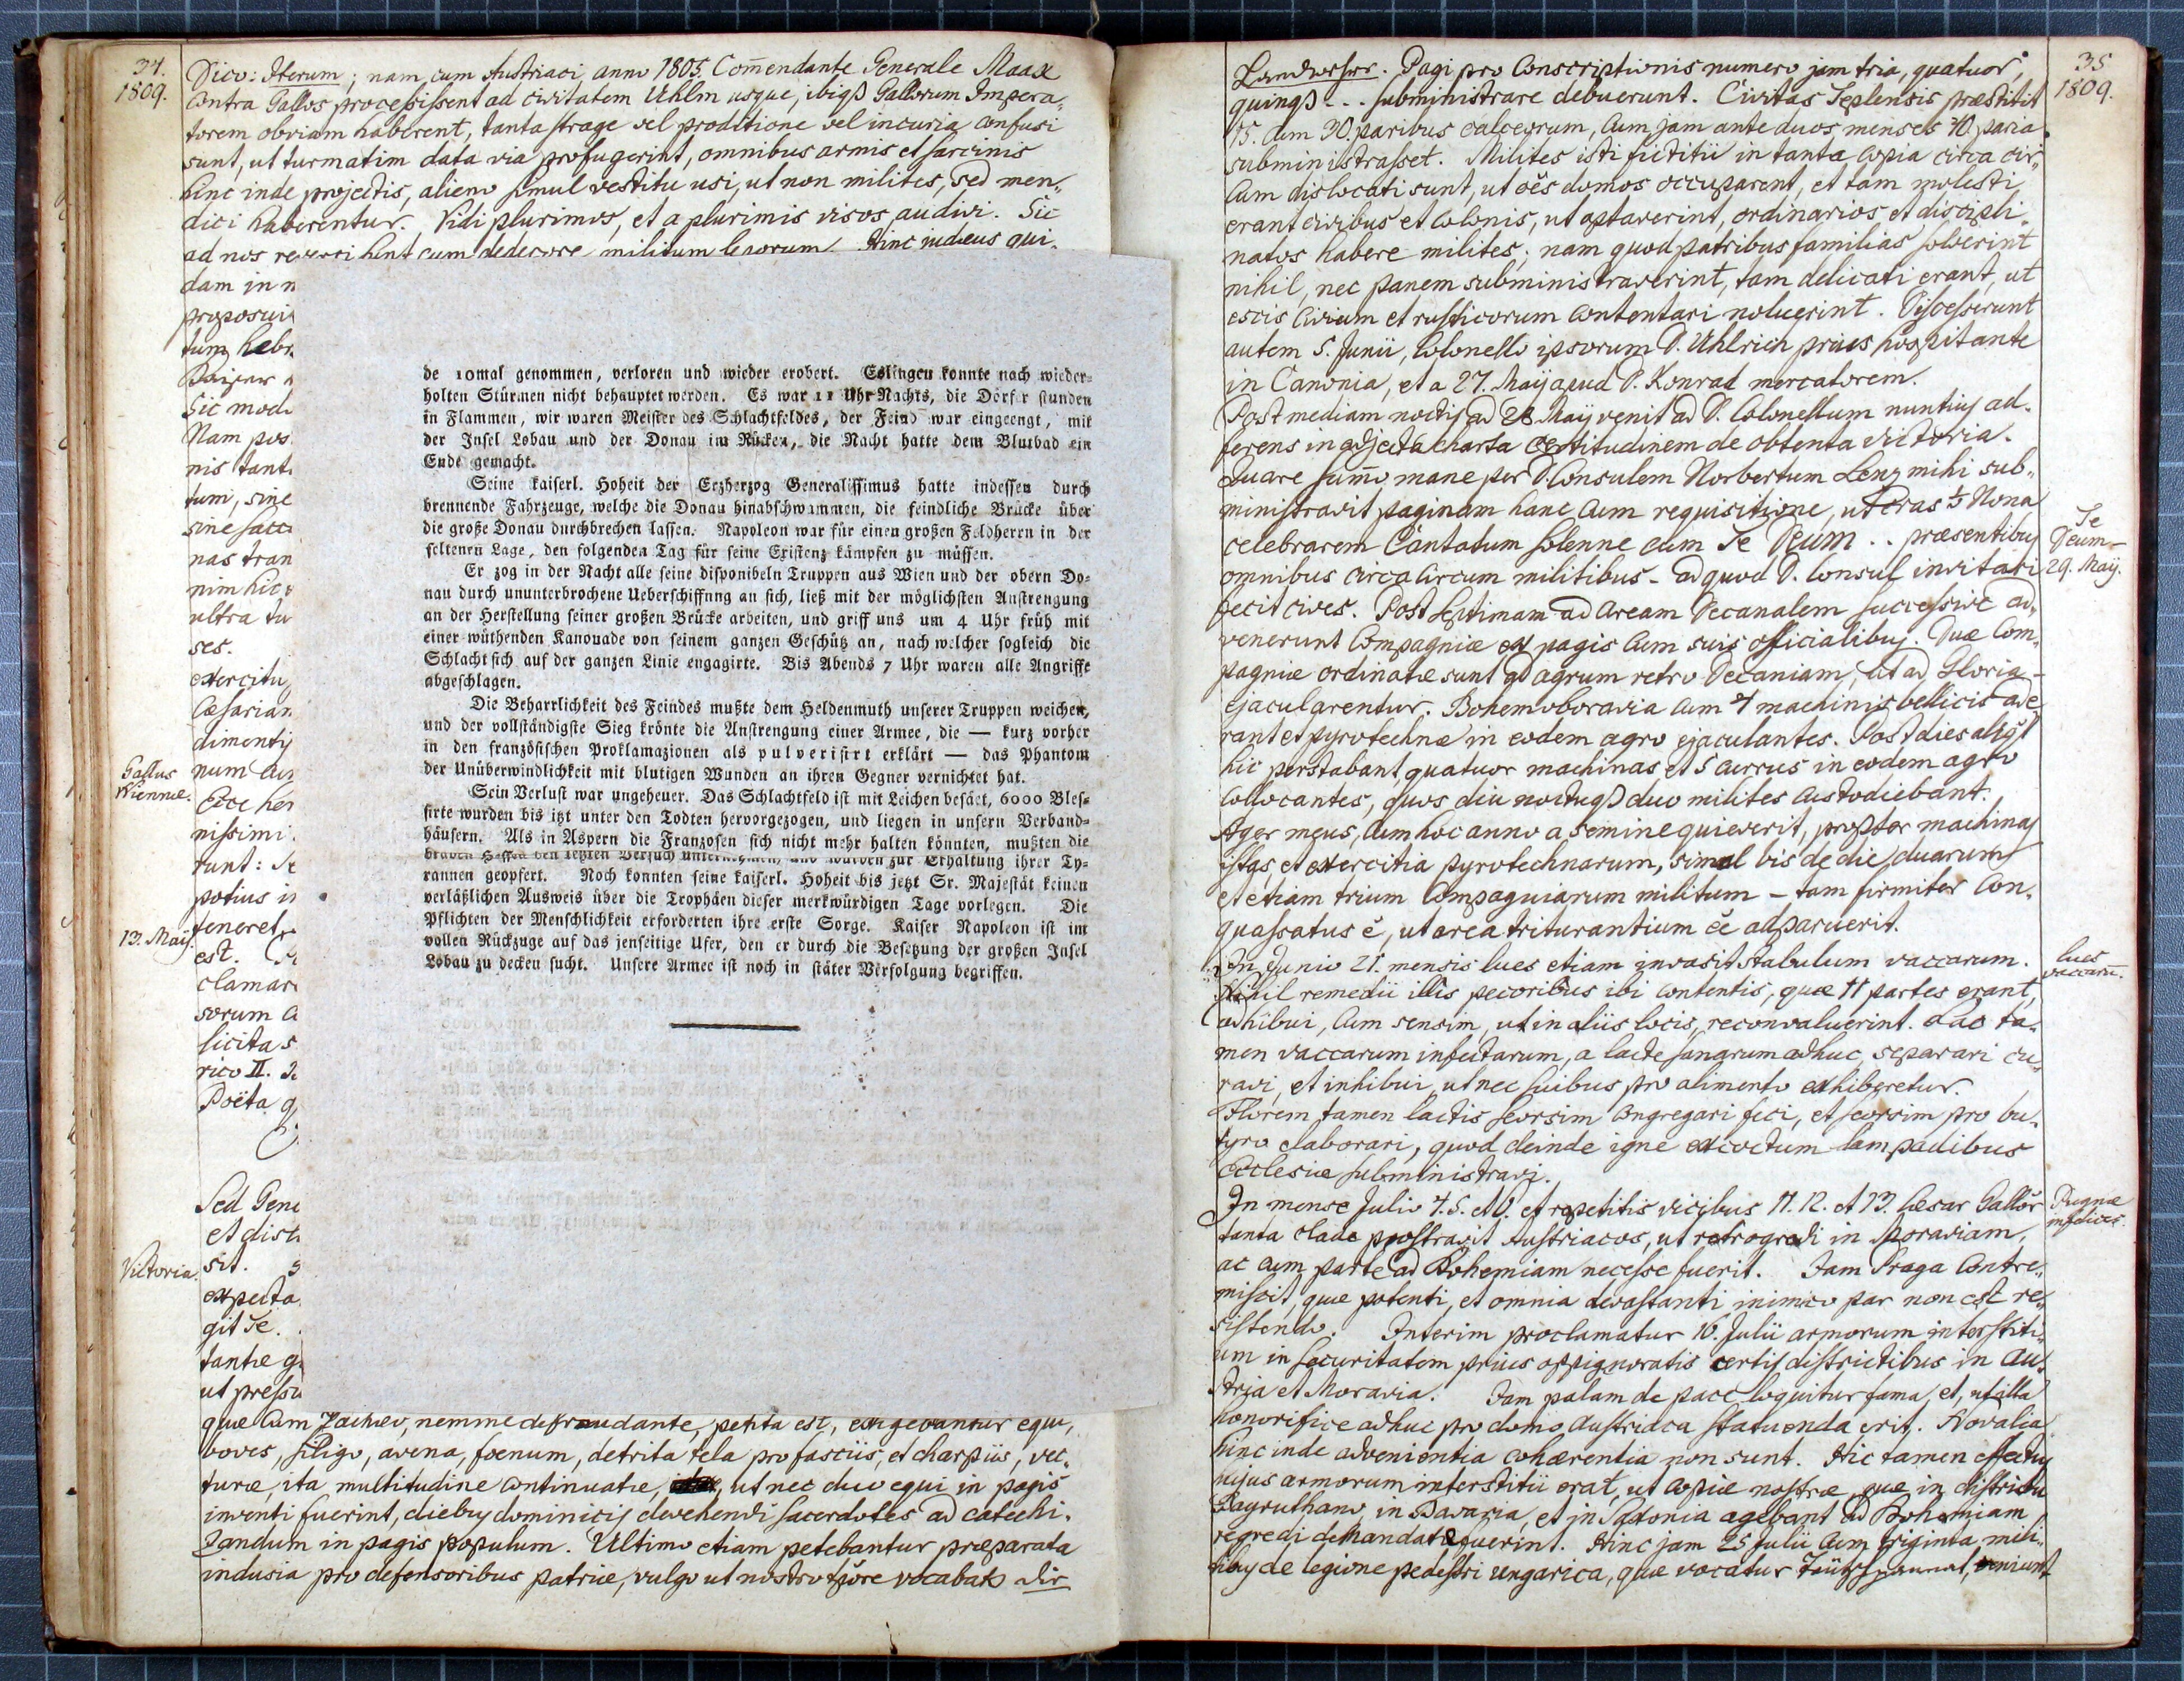 34.
1809.
Dico: Iterum; nam, cum Austriaci, anno 1805. Com̄endante Generale Maax
Contra Gallos processissent ad civitatem Uhlm usque, ibigß Gallorum Impera„
torem obviam haberent, tanta strage vel proditione vel incuria confusi
sunt, ut turmatim data via profugerint, omnibus armis et sarcinis
hinc inde projectis, alieno simul vestitu usi, ut non milites, sed men„
dici haberentur. Vidi plurimos, et a plurimis visos audivi. Sic
ad nos reversi sunt cum dedecore militum Hinc iudæus qui„
dam in n
proposui
tum hebr.
Sic mod
Nam pos
nis tant
tum, sine
sine sacc
nas tran
nim hic
ultra tu
ses.
exercitu
Cæsarian
dimentis
Gallus
Viennæ.
num cu
Ecce her
nissimi
runt: Se
potius in
13. Maÿ.
teneret
est.
clamar
sorum a
licitas
rico II.
Poëta q
Sed Gene
et dist
Victoria.
sit.
expecta
git Te.
tantæ g
ut pressu
quæ cum Zachæo, nemine defraudante, petita est, exigebantur equi,
boves, siligo, avena, fœnum, detrita tela pro fasciis, et charpiis, vec„
turæ, ita multitudine continuatæ, ut nec duo equi in pagis
inventi fuerint, diebus dominicis devehendi sacerdotes ad catechi„
zandum in pagis populum. Ultimo etiam petebantur præparata
indusia pro defensoribus patriæ, vulgo ut nostro vocabat die
de 10mal genommen, verloren und wieder erobert. Eslingen konnte nach wieder=
holten Stürmen nicht behauptet werden. Es war 11 Uhr Nachts, die Dörfer stunden
in Flammen, wir waren Meister des Schlachtfeldes, der Feind war eingeengt, mit
der Insel Lobau und der Donau im Rücken, die Nacht hatte dem Blutbad ein
Ende gemacht.
Seine kaiserl. Hoheit der Erzherzog Generalissimus hatte indessen durch
brennende Fahrzeuge, welche die Donau hinabschwammen, die feindliche Brücke über
die große Donau durchbrechen lassen. Napoleon war für einen großen Feldherrn in der
seltenen Lage, den folgenden Tag für seine Existenz kämpfen zu müssen.
Er zog in der Nacht alle seine disponibeln Truppen aus Wien und der obern Do=
nau durch ununterbrochene Ueberschiffung an sich, ließ mit der möglichsten Anstrengung
an der Herstellung seiner großen Brücke arbeiten, und griff uns um 4 Uhr früh mit
einer wüthenden Kanonade von seinem ganzen Geschütz an, nach welcher sogleich die
Schlacht sich auf der ganzen Linie engagirte. Bis Abends 7 Uhr waren alle Angriffe
abgeschlagen.
Die Beharrlichkeit des Feindes mußte dem Heldenmuth unserer Truppen weichen,
und der vollständigste Sieg krönte die Anstrengung einer Armee, die — kurz vorher
in den französischen Proklamazionen als pulverisirt erklärt — das Phantom
der Unüberwindlichkeit mit blutigen Wunden an ihren Gegner vernichtet hat.
Sein Verlust war ungeheuer. Das Schlachtfeld ist mit Leichen besäet, 6000 Bles=
sirte wurden bis itzt unter den Todten hervorgezogen, und liegen in unsern Verband=
häusern. Als in Aspern die Franzosen sich nicht mehr halten könnten, mußten die
braven Hessen den letzten Versuch unternehmen, und wurden zur Erhaltung ihrer Ty=
rannen geopfert. Noch konnten seine kaiserl. Hoheit bis jetzt Sr. Majestät keinen
verläßlichen Ausweis über die Trophäen dieser merkwürdigen Tage vorlegen. Die
Pflichten der Menschlichkeit erforderten ihre erste Sorge. Kaiser Napoleon ist im
vollen Rückzuge auf das jenseitige Ufer, den er durch die Besetzung der großen Insel
Lobau zu decken sucht. Unsere Armee ist noch in stäter Verfolgung begriffen.
35
1809.
Landwehr. Pagi pro Conscriptionis numero jam tria, quatuor,
quinqß... subministrare debuerunt. Civitas Teplensis præstitit
15. cum 30 paribus calceorum, cum jam ante duos menses 40 paria
subministrasset. Milites isti fictitii in tanta copia circa cir„
cum dislocati sunt, ut oēs domos occuparent, et tam molesti
erant civibus et colonis, ut optaverint, ordinarios et discipli„
natos habere milites; nam quod patribus familias solverint
nihil, nec panem subministraverint, tam delicati erant, ut
escis civium et rusticorum contentari noluerint. Discesserunt
autem 5. Junii, Colonello ipsorum D. Uhlrich prius hospitante
in Canonia, et a 27. Maÿ apud D. Konrad mercatorem.
Post mediam noctis ad 28 Maÿ venit ad D. Colonellum nuntius ad„
ferens in adjecta charta certitudinem de obtenta victoria.
Quare sum̄o mane per D. Consulem Norbertum Lenz mihi sub„
ministravit paginam hanc cum requisitione, ut cras ½ Nona
celebrarem Cantatum solenne cum Te Deum .. præsentibus
Te
Deum
29. Maÿ.
omnibus circa circum militibus - ad quod D. Consul invitari
fecit cives. Post septimam ad aream Decanalem successive ad„
venerunt Compagniæ ex pagis cum suis officialibus. Duæ Com„
pagniæ ordinatæ sunt ad agrum retro Decaniam, ut ad Gloria -
ejacularentur. Bohemoboravia cum 4 machinis bellicis ade„
rant et pyrotechnæ in eodem agro ejaculantes. Post dies
hic perstabant, quatuor machinas et 5 currus in eodem agro
collocantes, quos diu noctuqß duo milites custodiebant.
Ager meus, cum hoc anno a semine quieverit, propter machinas
istas, et exercitia pyrotechnarum, simul bis de die duarum
et etiam trium Compagniarum militum - tam firmiter con„
quassatus ē, ut area triturantium ēē adparuerit.
In Junio 21. mensis lues etiam invasit stabulum vaccarum.
lues
vaccarū.
Nihil remedii illis pecoribus ibi contentis, quæ 11 partes erant,
adhibui, cum sensim, ut in aliis locis, reconvaluerint. Lac ta„
men vaccarum infectarum, a lacte sanarum adhuc, separari cu„
ravi, et inhibui, ut nec suibus pro alimento exhiberetur.
Florem tamen lactis seorsim congregari feci, et seorsim pro bu„
tyro elaborari, quod deinde igne excoctum lampadibus
Ecclesiæ subministravi.
In mense Julio 4. 5. et 6. et repetitis vicibus 11. 12. et 13. Cæsar Gallor̄
Pugnæ
infelices.
tanta clade prostravit Austriacos, ut retrogredi in Moraviam,
ac cum parte ad Bohemiam necesse fuerit. Jam Praga contre„
miscit, quæ potenti, et omnia devastanti inimico par non est re„
sistendo. Interim proclamatur 16. Julii armorum interstiti„
um in securitatem prius oppignoratis certis districtibus in Au„
stria et Moravia. Jam palam de pace loquitur fama, et, ut illa
honorifice adhuc pro domo Austriaca statuenda erit. Novalia
hinc inde advenientia cohærentia non sunt. Hic tamen effectus
hujus armorum interstitii erat, ut copiæ nostræ, quæ in districtu
Bayruthano, in Bavaria, et in Saxonia agebant ad Bohemiam
regredi demandatæ fuerint. Hinc jam 25 Julii cum triginta mili„
tibus de legione pedestri ungarica, quæ vocatur veniunt